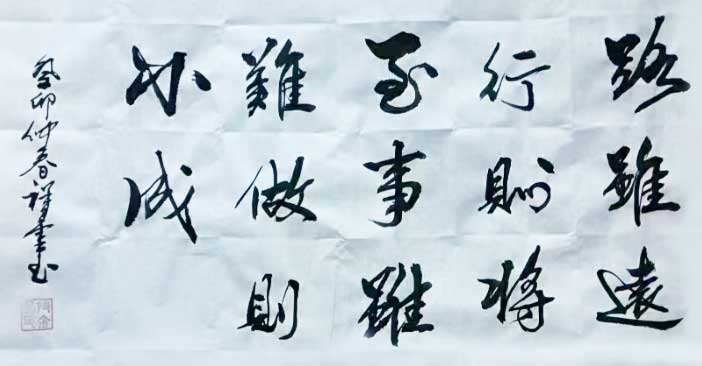 路雖遠
行則將
至事雖
難做則
必成
癸卯仲春祥书